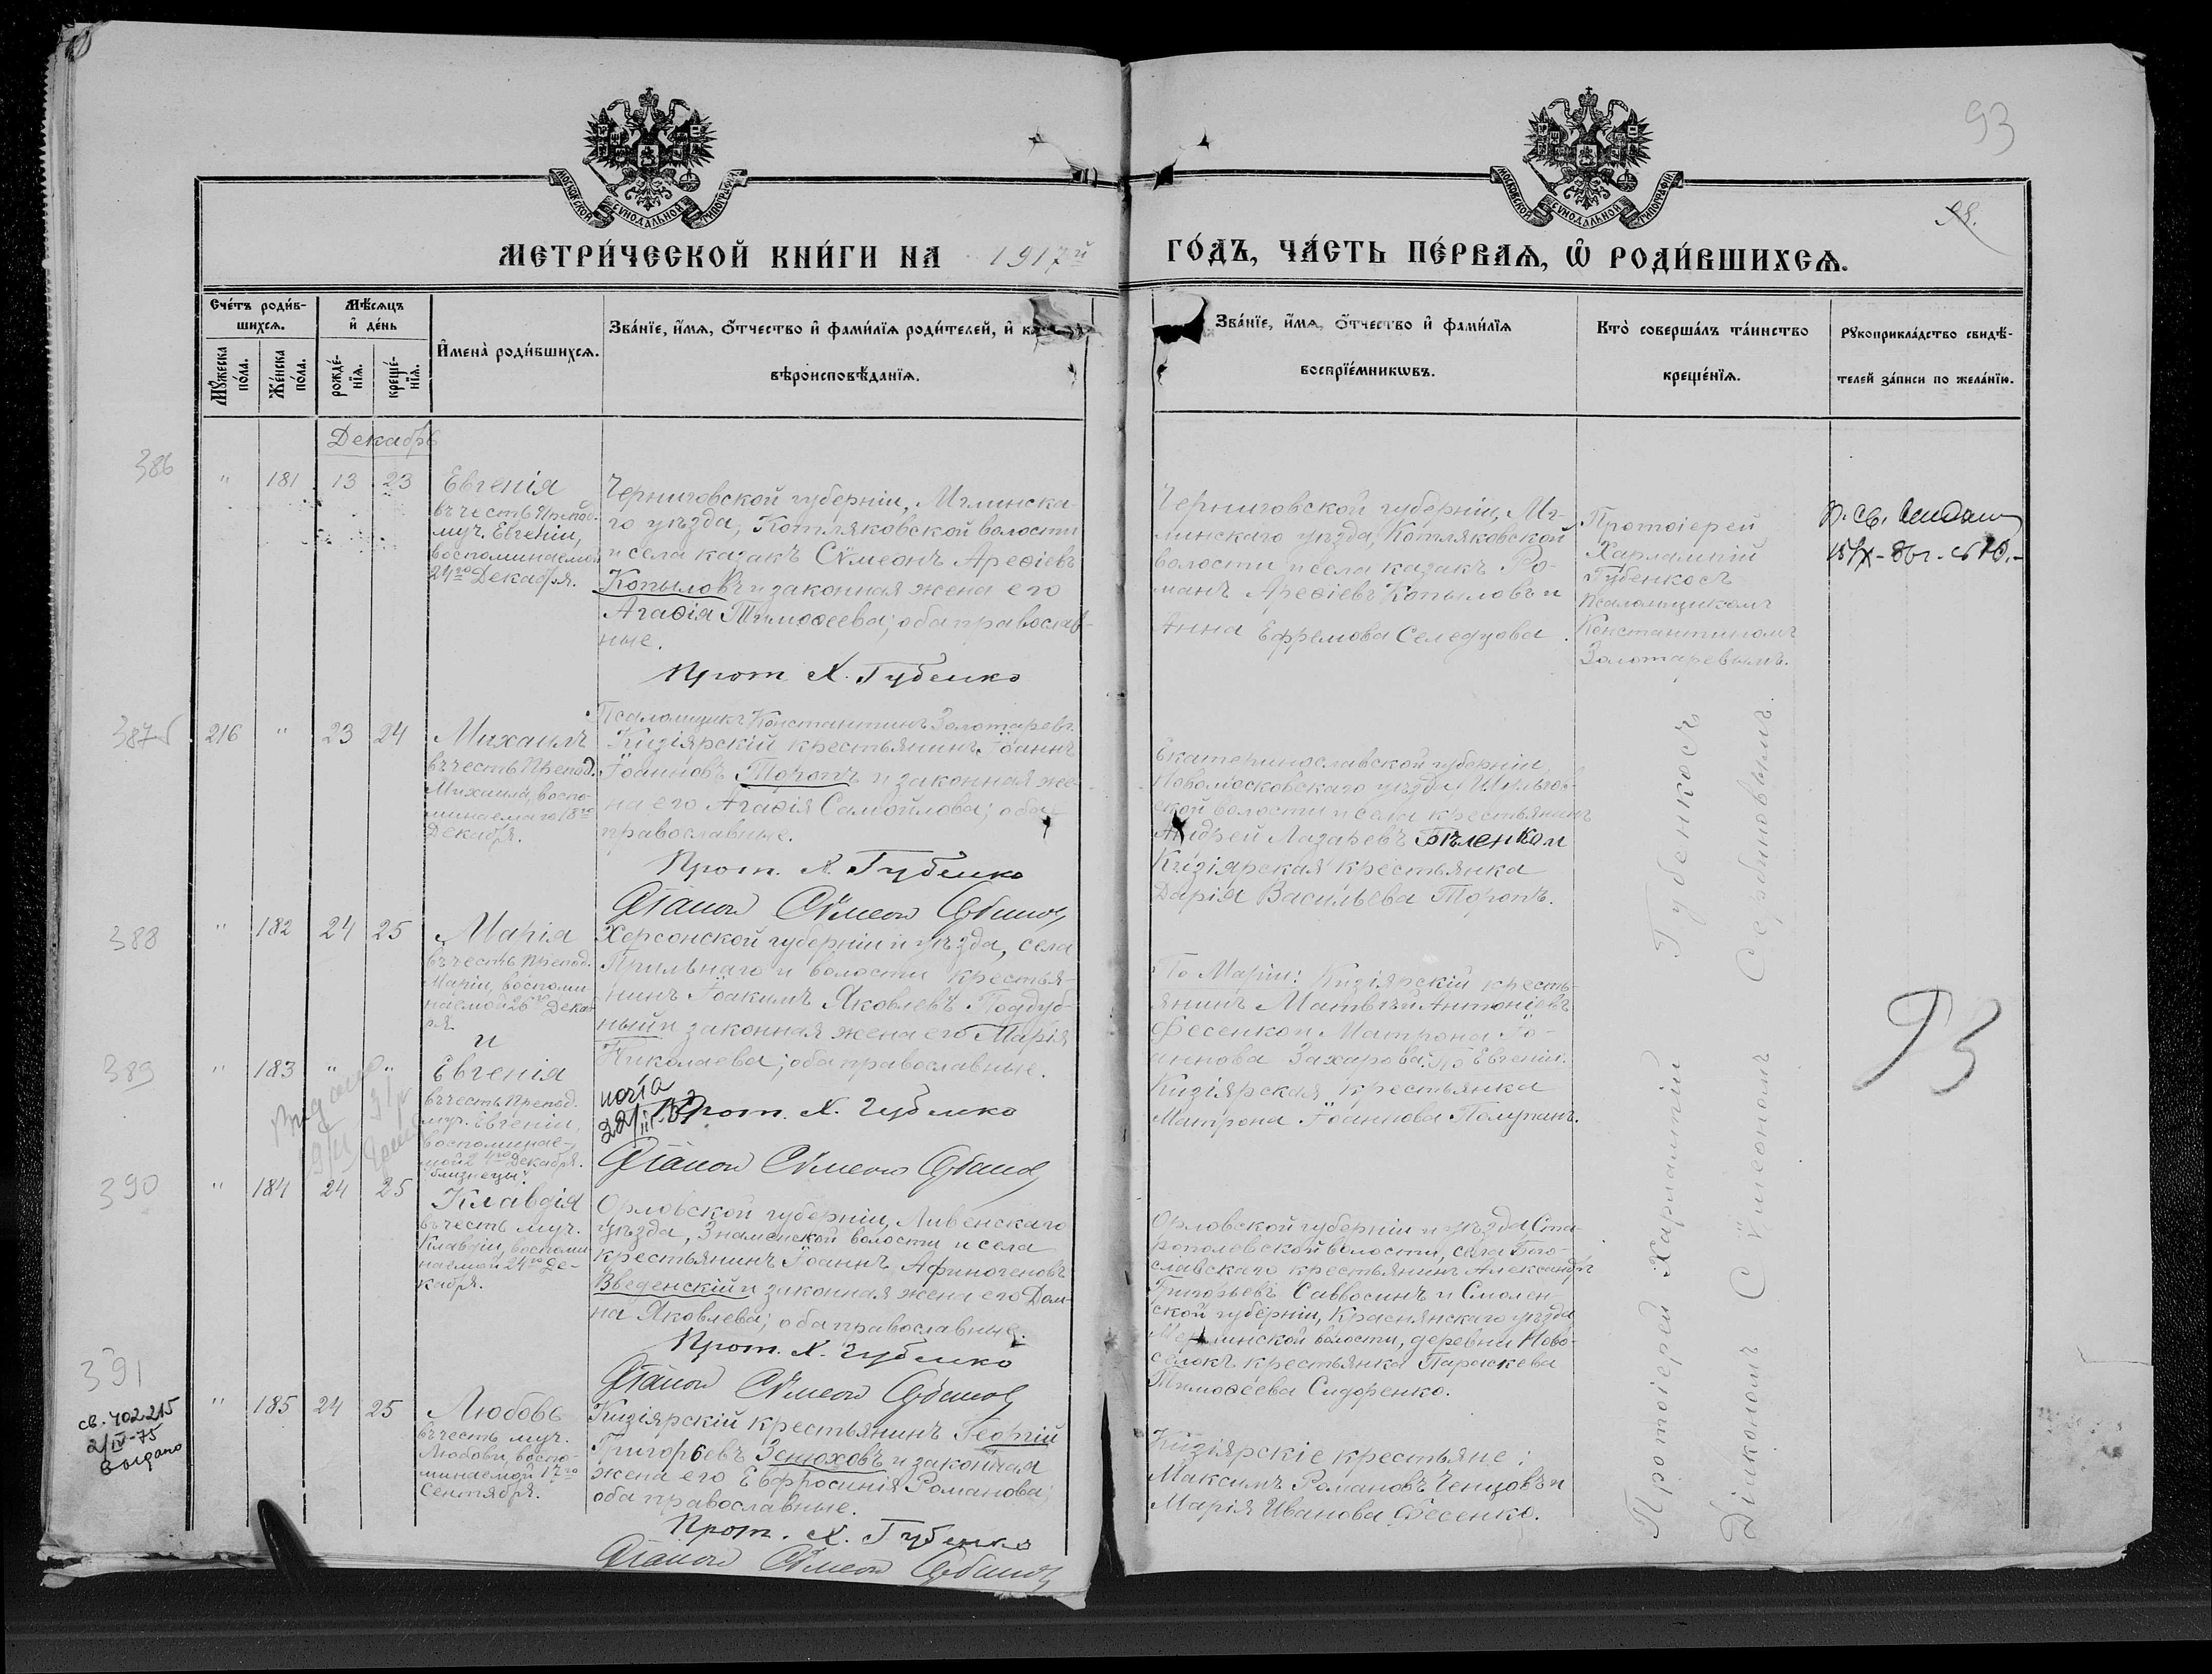 93
98.
МОСКОВСКОЙ СУНОДАЛЬНОЙ ТИПОГРАФІИ
МОСКОВСКОЙ СУНОДАЛЬНОЙ ТИПОГРАФІИ
МЕТРИ́ЧЕСКОЙ КНИ́ГИ НА 1917й
ГО́ДЪ, ЧА́СТЬ ПЕ́РВАѦ, Ѽ РОДИ́ВШИХСѦ.
Счéтъ роди́в-
шихсѧ.
Мꙋ́жеска по́ла.
Же́нска по́ла.
Мѣ́сѧцъ
и҆ де́нь
рожде́-
нїѧ.
креще́-
нїѧ.
И҆мена̀ роди́вшихсѧ.
Зва́нїе, и҆́мѧ, ѻ҆́тчество и҆ фами́лїѧ роди́телей, и҆
вѣроисповѣ́данїѧ.
Зва́нїе, и҆́мѧ, ѻ҆́тчество и҆ фами́лїѧ
воспрїе́мникѡвъ.
Кто̀ соверша́лъ та́инство
креще́нїѧ.
Рꙋкоприкла́дство свидѣ́-
телей за́писи по жела́нїю.
Декабрь
386
" 181 13 23
Евгенія
въ честь Препод.
муч. Евгеніи,
воспоминаемой
24го Декабря.
Черниговской губерніи, Мглинска
го уѣзда, Котляковской волости
и села казакъ Сѵмеонъ Ареѳіевъ
Копыловъ и законная жена его
Агаѳія Тимоѳеева; оба православ-
ные.
Прот. Х. Губенко
Псаломщикъ Константинъ Золотаревъ.
Черниговской губерніи, Мг-
линскаго уѣзда, Котляковской
волости и села казакъ Ро-
манъ Ареѳіевъ Копыловъ и
Анна Ефремова Селедцова.
Протоіерей
Харлампій
Губенко съ
Псаломщикомъ
Константиномъ
Золотаревымъ.
387
216 " 23 24
Михаилъ
въ честь Препод.
Михаила, воспо-
минаемаго 18го
Декабря.
Кизіярскій крестьянинъ Іоаннъ
Іоанновъ Торопъ и законная же-
на его Агаѳія Самойлова; оба
православные.
Прот. Х. Губенко
Діаконъ Сѵмеонъ
Екатеринославской губерніи
Новомосковскаго уѣзда
ской волости и села крестьянинъ
Андрей Лазаревъ Бѣленко и
Кизіярская крестьянка
Дарія Васильева Торопъ.
388
" 182 24 25
Марія
въ честь Препод.
Маріи, воспоми
наемой 26го Декаб
ря.
и
Херсонской губерніи и уѣзда, села
и волости крестья-
нинъ Іоакимъ Яковлевъ Поддуб-
ный и законная жена его Марія
Николаева; оба православные.
Прот. Х. Губенко
Діаконъ Сѵмеонъ
По Маріи: Кизіярскій кресть-
янинъ Матвѣй Антоніевъ
Фесенко и Матрона Іо-
аннова Захарова; по Евгеніи:
Кизіярская крестьянка
Матрона Іоаннова Полупанъ.
389
" 183 " "
Евгенія
въ честь Препод.
муч. Евгеніи,
воспоминае-
мой 24го Декабря.
близнецы.
390
" 184 24 25
Клавдія
въ честь муч.
Клавдіи, воспоми
наемой 24го Де-
кабря.
Орловской губерніи, Ливенскаго
уѣзда, Знаменской волости и села
крестьянинъ Іоаннъ Афиногеновъ
Введенскій и законная жена его Дом-
на Яковлева; оба православные.
Прот. Х. Губенко
Діаконъ Сѵмеонъ
Орловской губерніи и уѣзда Ста-
ропольской волости, села Бого-
славскаго крестьянинъ Александръ
Григорьевъ Саввосинъ и Смолен-
ской губерніи, Краснянскаго уѣзда
волости, деревни Ново-
селокъ крестьянка Параскева
Тимоѳеева Сидоренко.
391
св. 402215
2/IV-75
выдано
" 185 24 25
Любовь
въ честь муч.
Любови, воспо-
минаемой 17го
Сентября.
Кизіярскій крестьянинъ Георгій
Григорьевъ Зенюховъ и законная
жена его Евфросинія Романова;
оба православные.
Прот. Х. Губенко
Діаконъ Сѵмеонъ
Кизіярскіе крестьяне:
Максимъ Романовъ Ченцовъ и
Марія Иванова Фесенко.
Протоіерей Харлампій Губенко съ
Діакономъ Сѵмеономъ
93